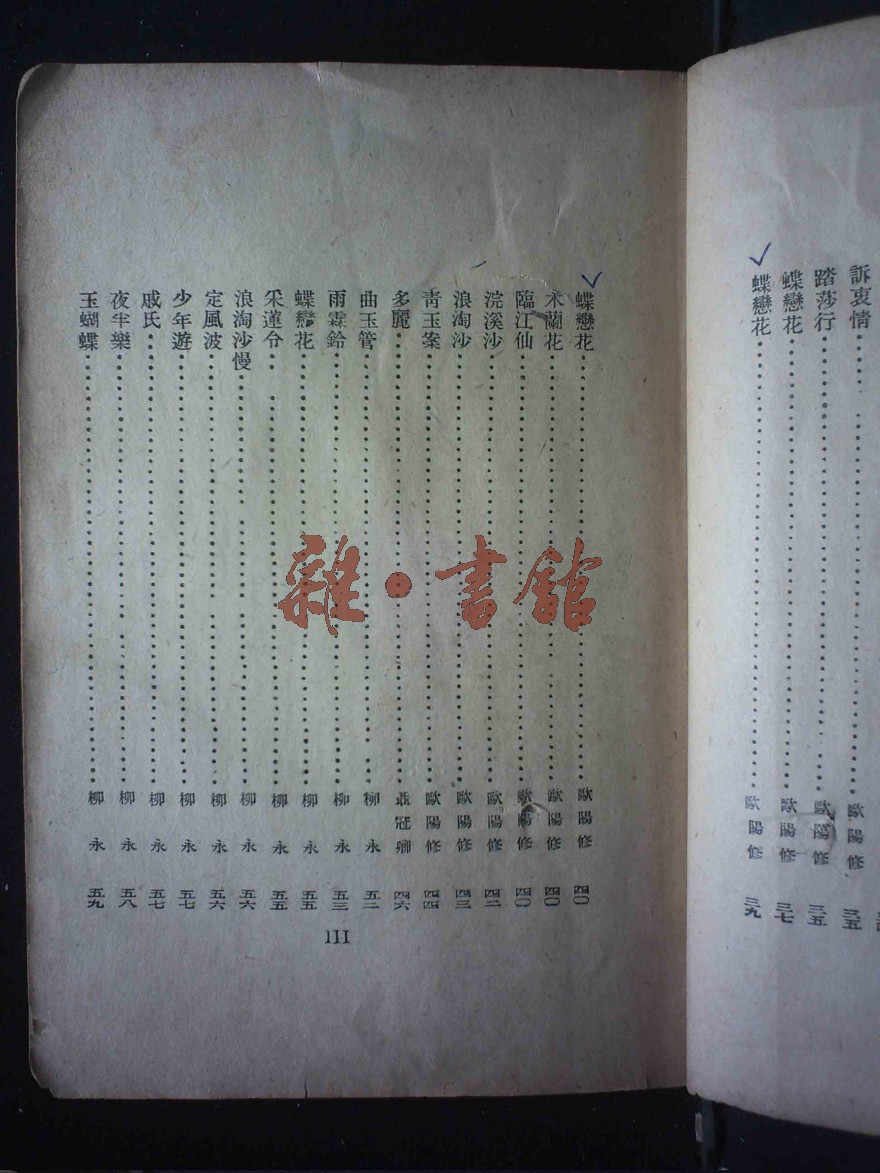 訴衷情 歐陽修 三五
踏莎行 歐陽修 三五
蝶戀花 歐陽修 三七
蝶戀花 歐陽修 三九
蝶戀花 歐陽修 四〇
木蘭花 歐陽修 四〇
臨江仙 歐陽修 四〇
浣溪沙 歐陽修 四二
浪淘沙 歐陽修 四三
青玉案 歐陽修 四四
多麗 聶冠卿 四六
曲玉管 柳永 五二
雨霖鈴 柳永 五三
蝶戀花 柳永 五五
采蓮令 柳永 五五
浪淘沙慢 柳永 五六
定風波 柳永 五六
少年遊 柳永 五七
戚氏 柳永 五七
夜半樂 柳永 五八
玉蝴蝶 柳永 五九
III
雜·書館